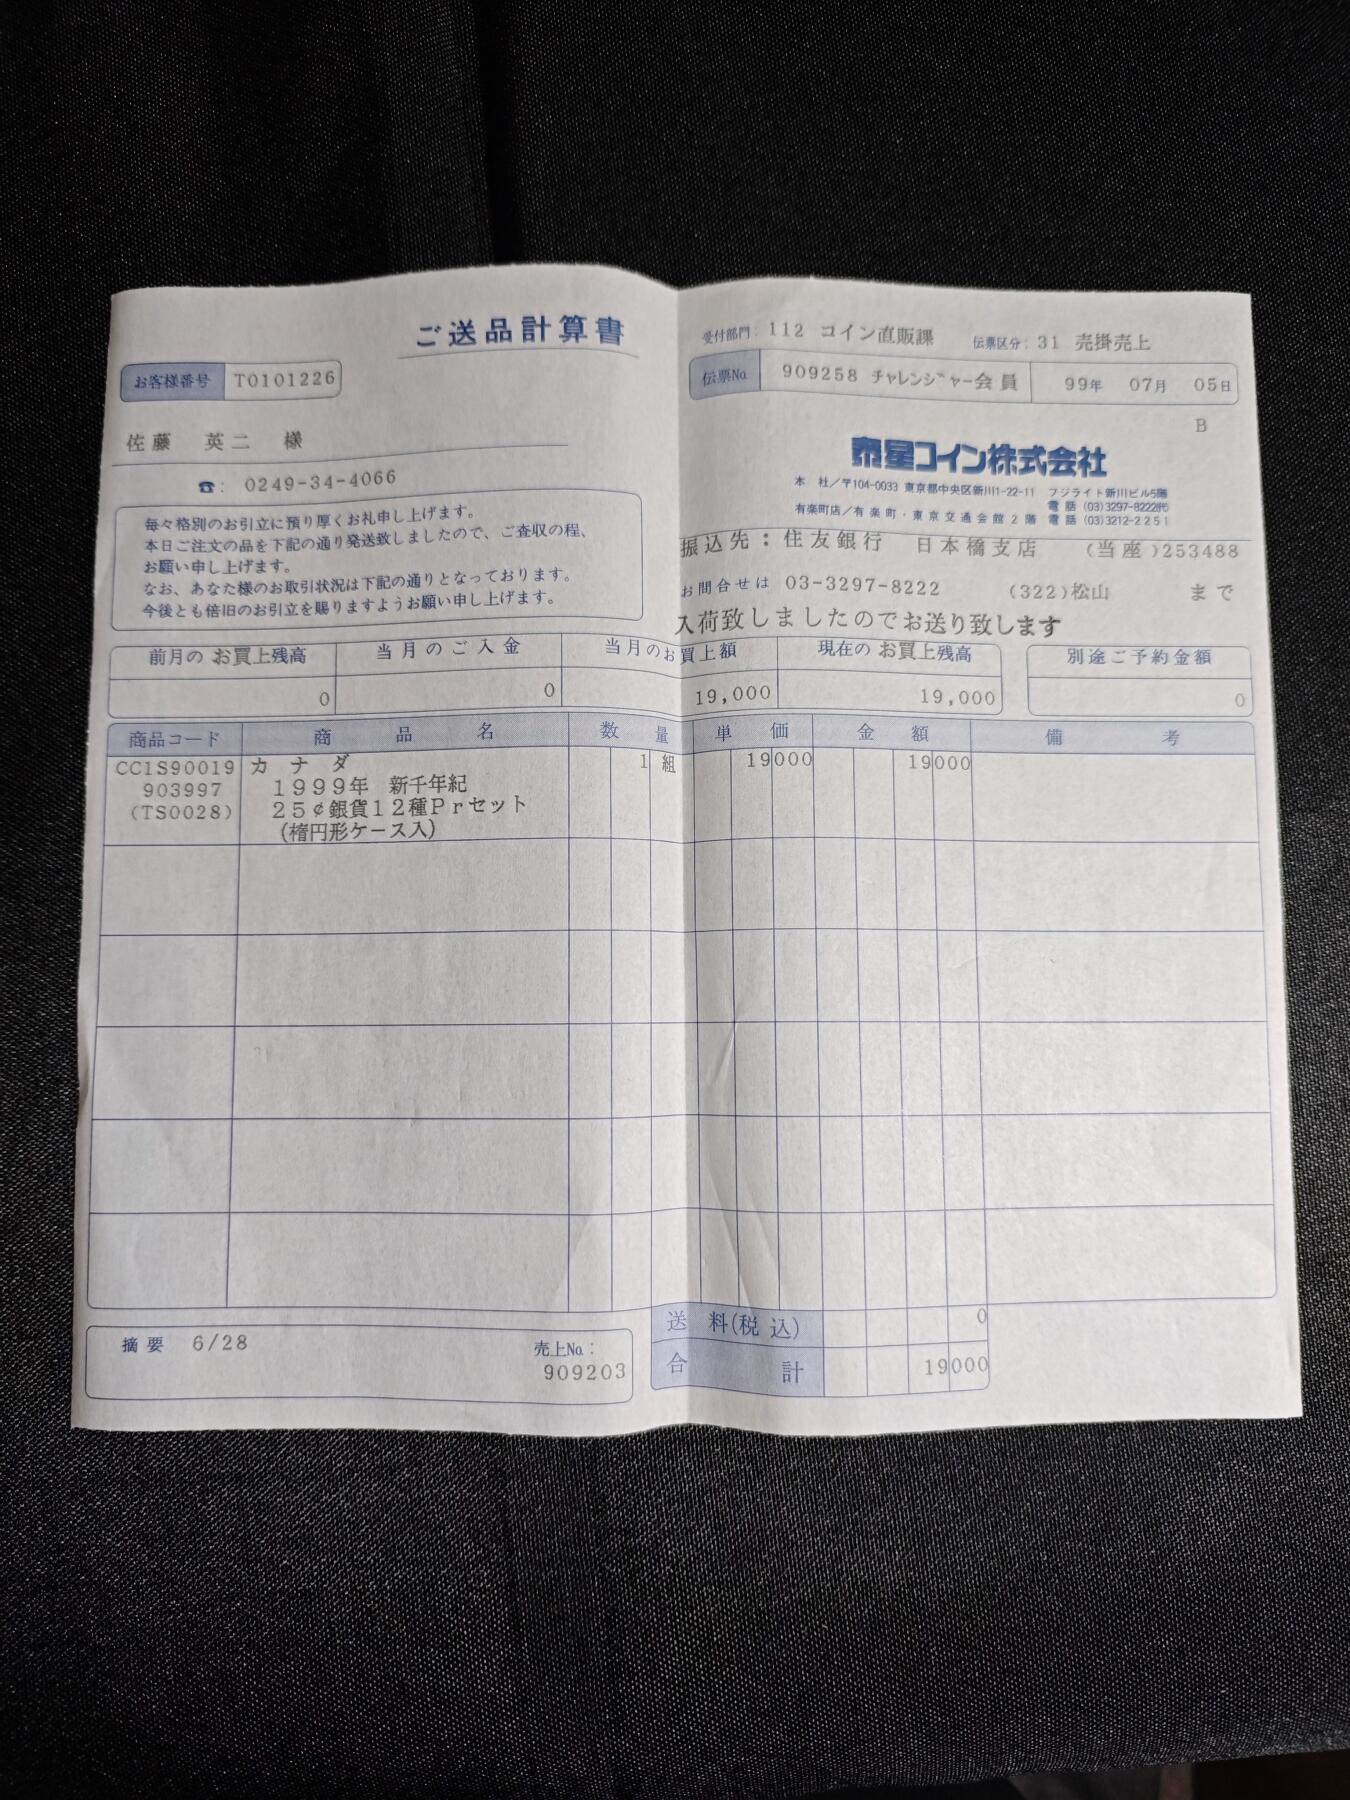 ご送品計算書
お客様番号 T0101226
佐藤 英二 様
☎: 0249-34-4066
毎々格別のお引立に預り厚くお礼申し上げます。
本日ご注文の品を下記の通り発送致しましたので、ご査収の程、
お願い申し上げます。
なお、あなた様のお取引状況は下記の通りとなっております。
今後とも倍旧のお引立を賜りますようお願い申し上げます。
受付部門: 112 コイン直販課 伝票区分: 31 売掛売上
伝票No. 909258 チャレンジャー会員 99年 07月 05日
B
泰星コイン株式会社
本 社/〒104-0033 東京都中央区新川1-22-11 フジライト新川ビル5階
電話 (03)3297-8222代
有楽町店/有楽町・東京交通会館2階 電話 (03)3212-2251
振込先:住友銀行 日本橋支店 (当座)253488
お問合せは 03-3297-8222 (322)松山 まで
入荷致しましたのでお送り致します
前月の お買上残高 当月のご入金 当月のお買上額 現在の お買上残高 別途ご予約金額
0 0 19,000 19,000 0
商品コード 商品名 数量 単価 金額 備考
CC1S90019 カナダ 1 組 19000 19000
903997 1999年 新千年紀
(TS0028) 25¢銀貨12種Prセット
(楕円形ケース入)
送料(税込) 0
合計 19000
摘要 6/28 売上No.:
909203